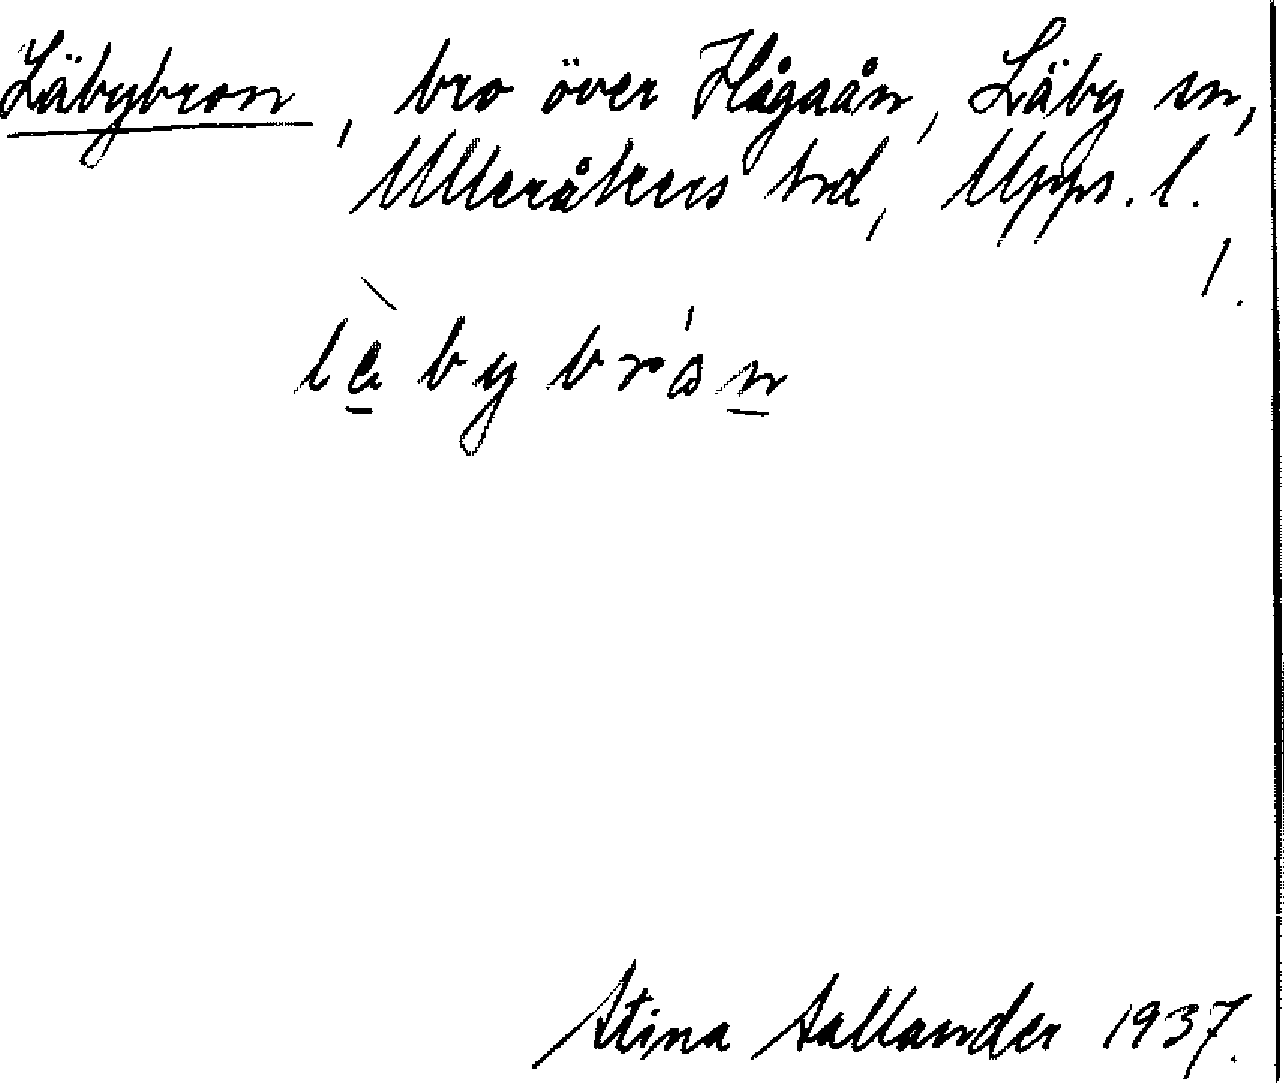 Läbybron, bro över Hågaån, Läby sn,
Ulleråkers hd, Upps. l.
1.
Stina Sallander 1937.